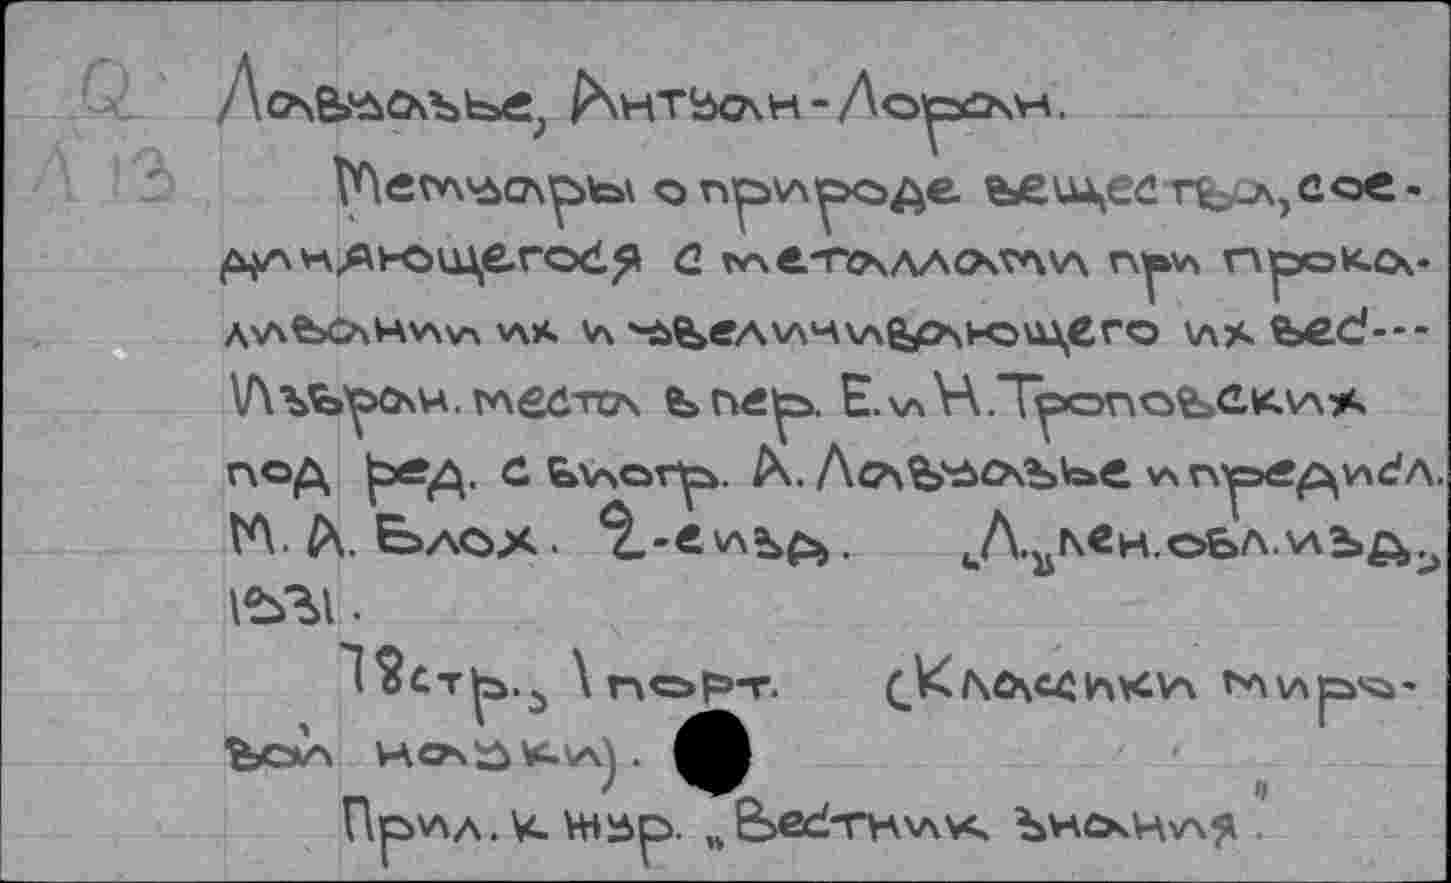 Q
Л 13
Лавуазье, Антуан-Лоран.
Мемуары о природе вещества, сое-
диняющегося с металлами при прока-
ливании их и увеличивающего их вес---
Избран. места в пер. Е. и Н. Троповских
под ред. с биогр. А. Лавуазье и предисл.
М. А. Блох. 2-е изд. Л., Лен. обл. изд.,
1931.
78стр., 1 порт. (Классики миро-
вой науки).
Прил. к жур. „Вестник знания".